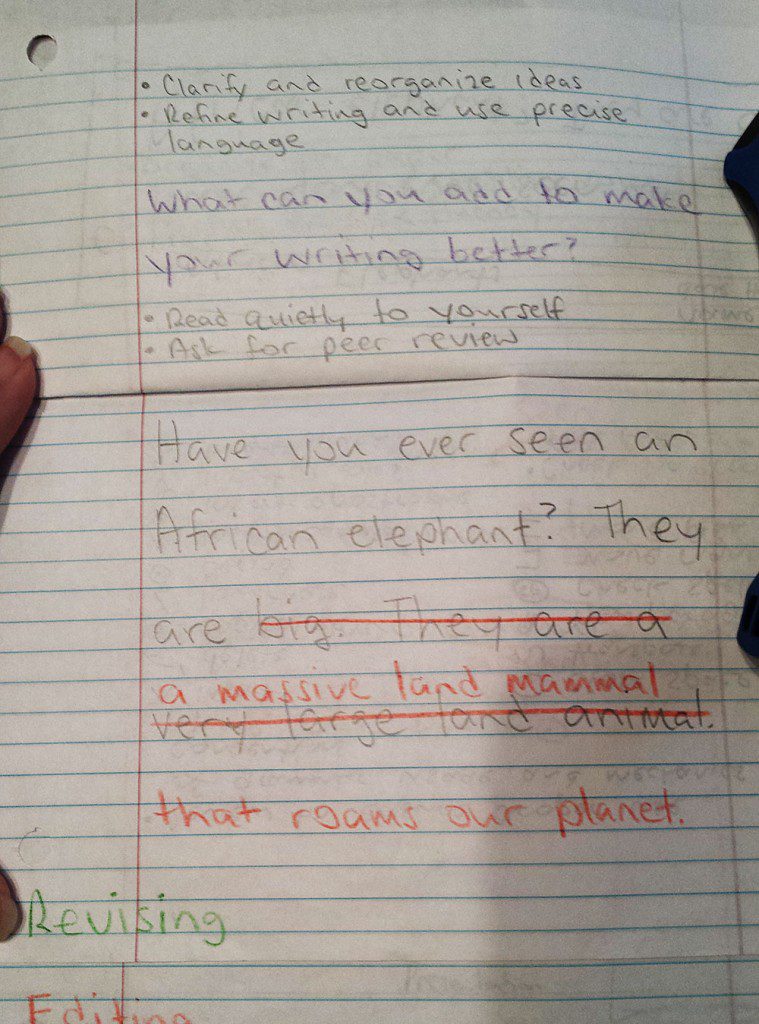 • Clarify and reorganize ideas
• Refine writing and use precise
language
What can you add to make
your writing better?
• Read quietly to yourself
• Ask for peer review
Have you ever seen an
African elephant? They
are big. They are a
a massive land mammal
very large land animal.
that roams our planet.
Revising
Editing